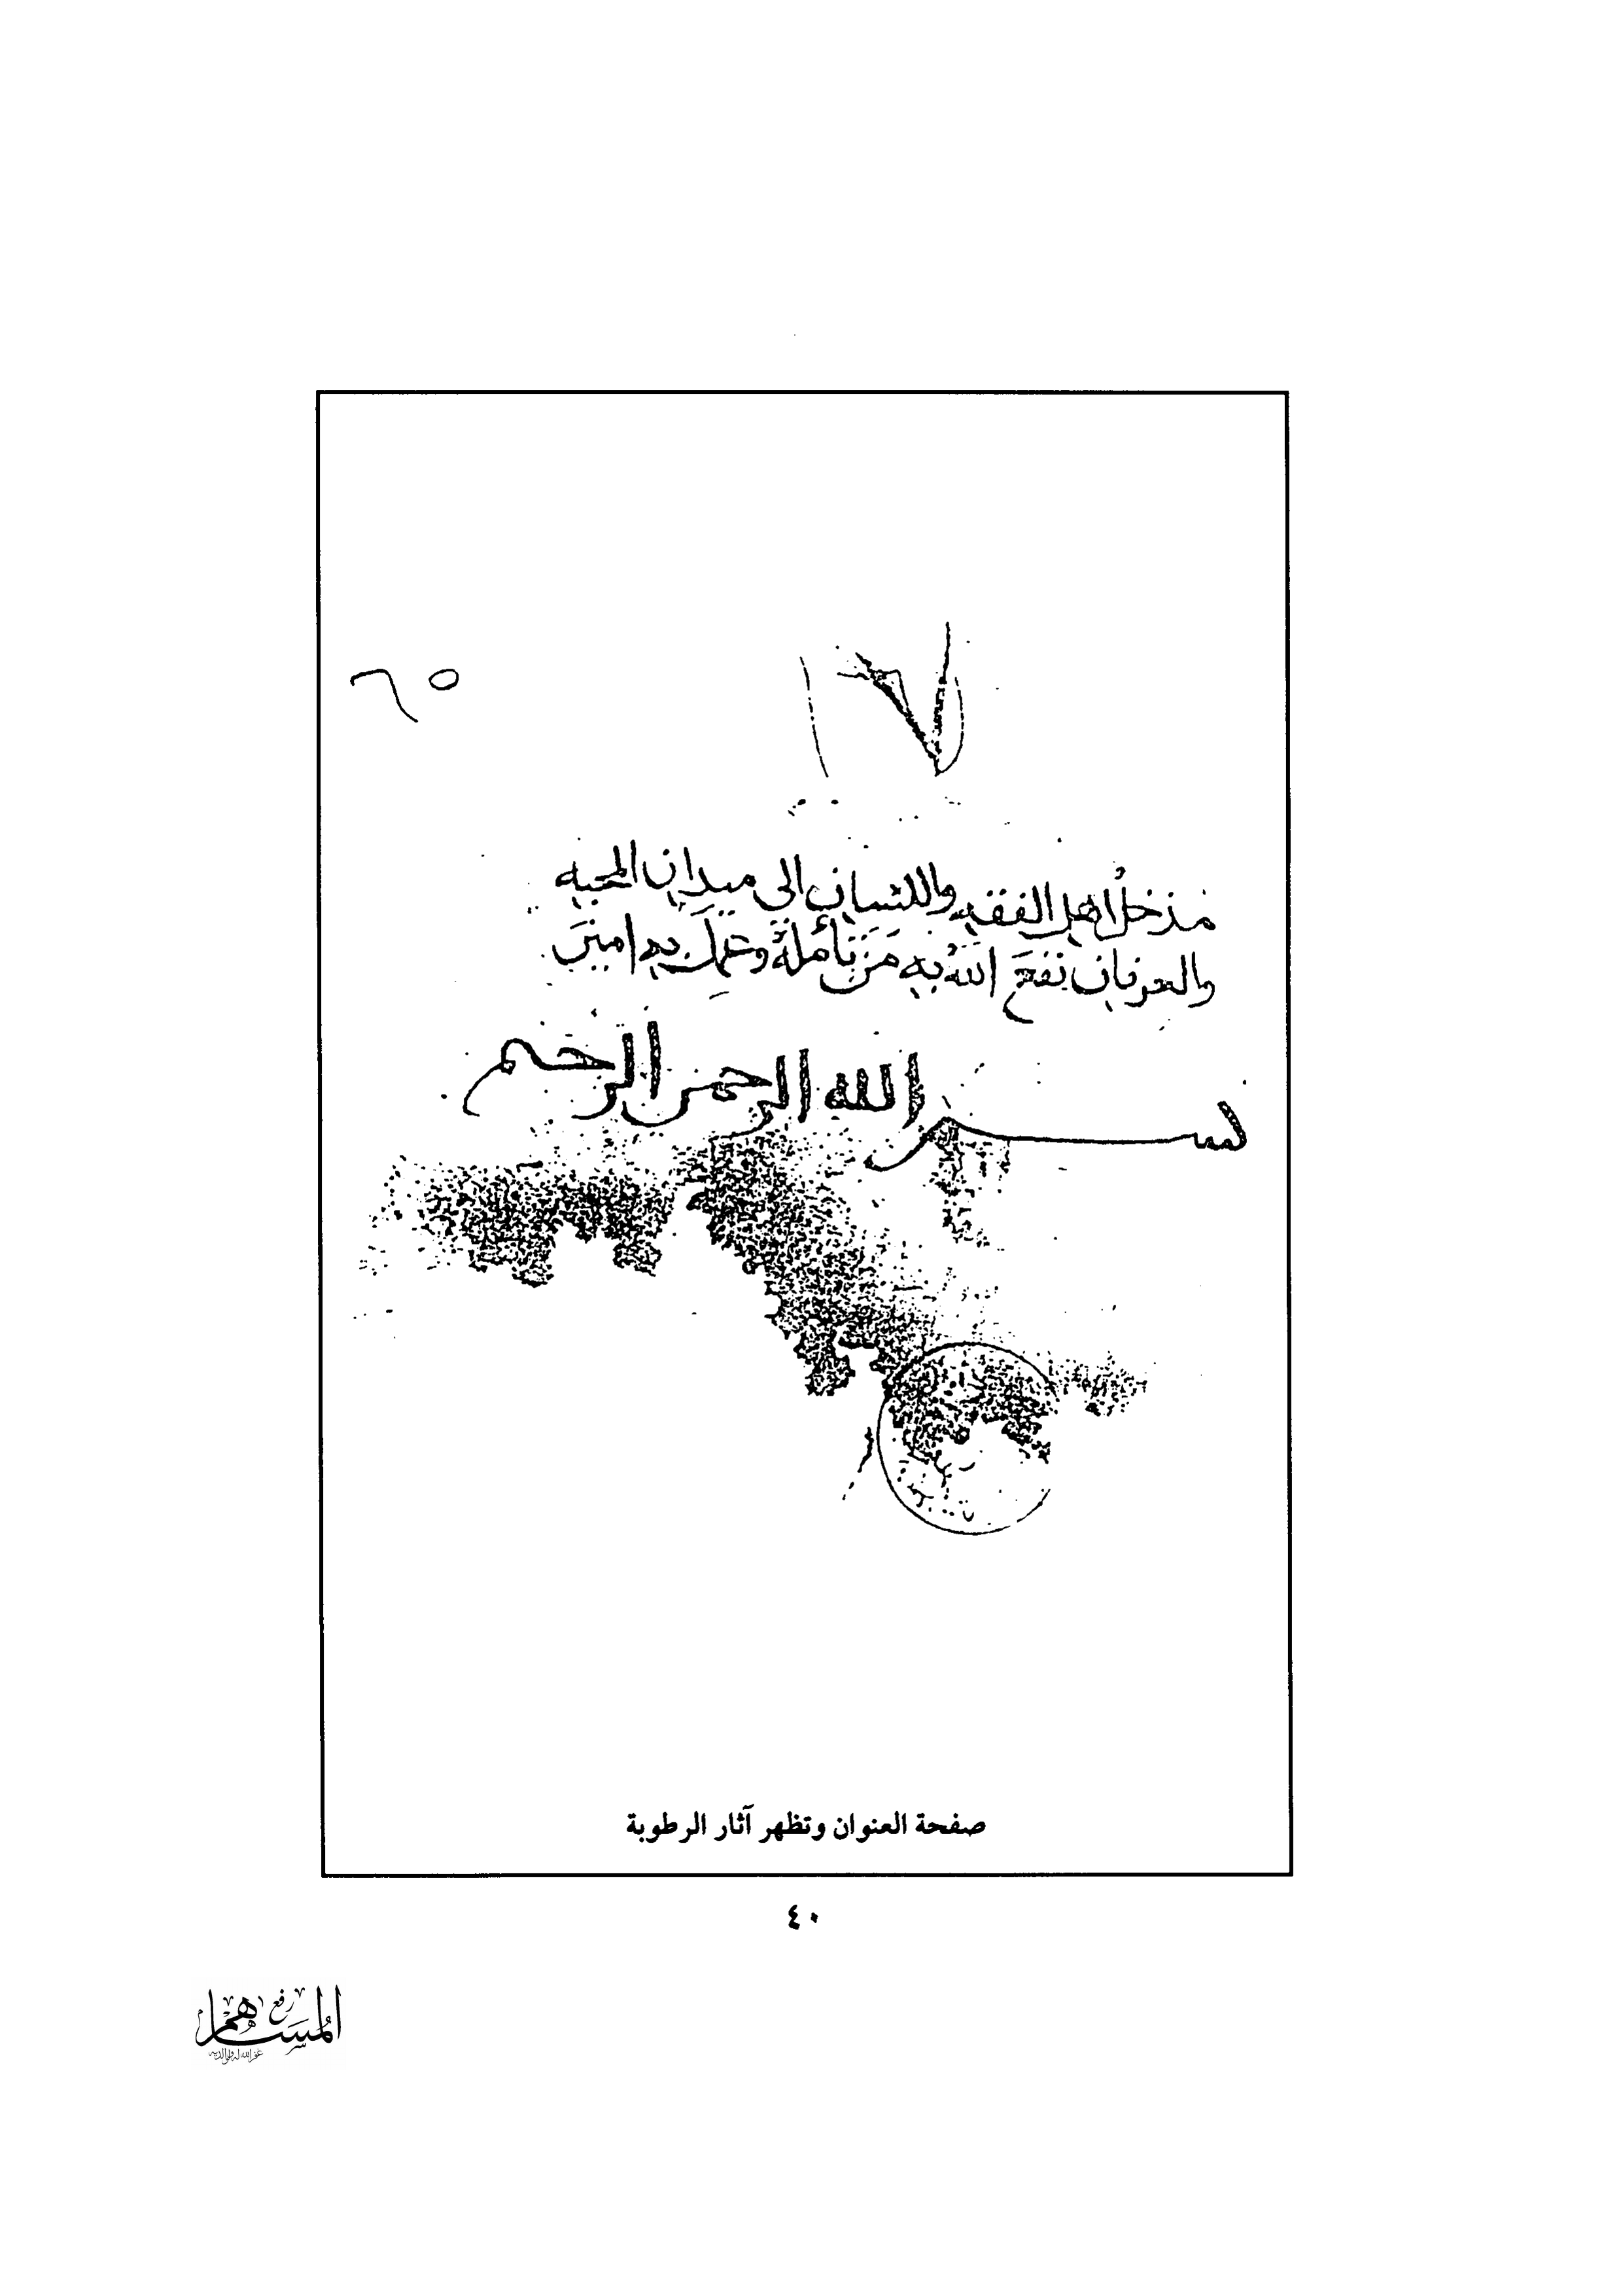 ٦٥
مدخل اهل الفقه واللسان الى ميدان المحبه
والعرفان نفع الله به من تأمله وعمل به امين
بسم الله الرحمن الرحيم
صفحة العنوان وتظهر آثار الرطوبة
٤٠
رفع
المساهم
غفر الله له ولوالديه